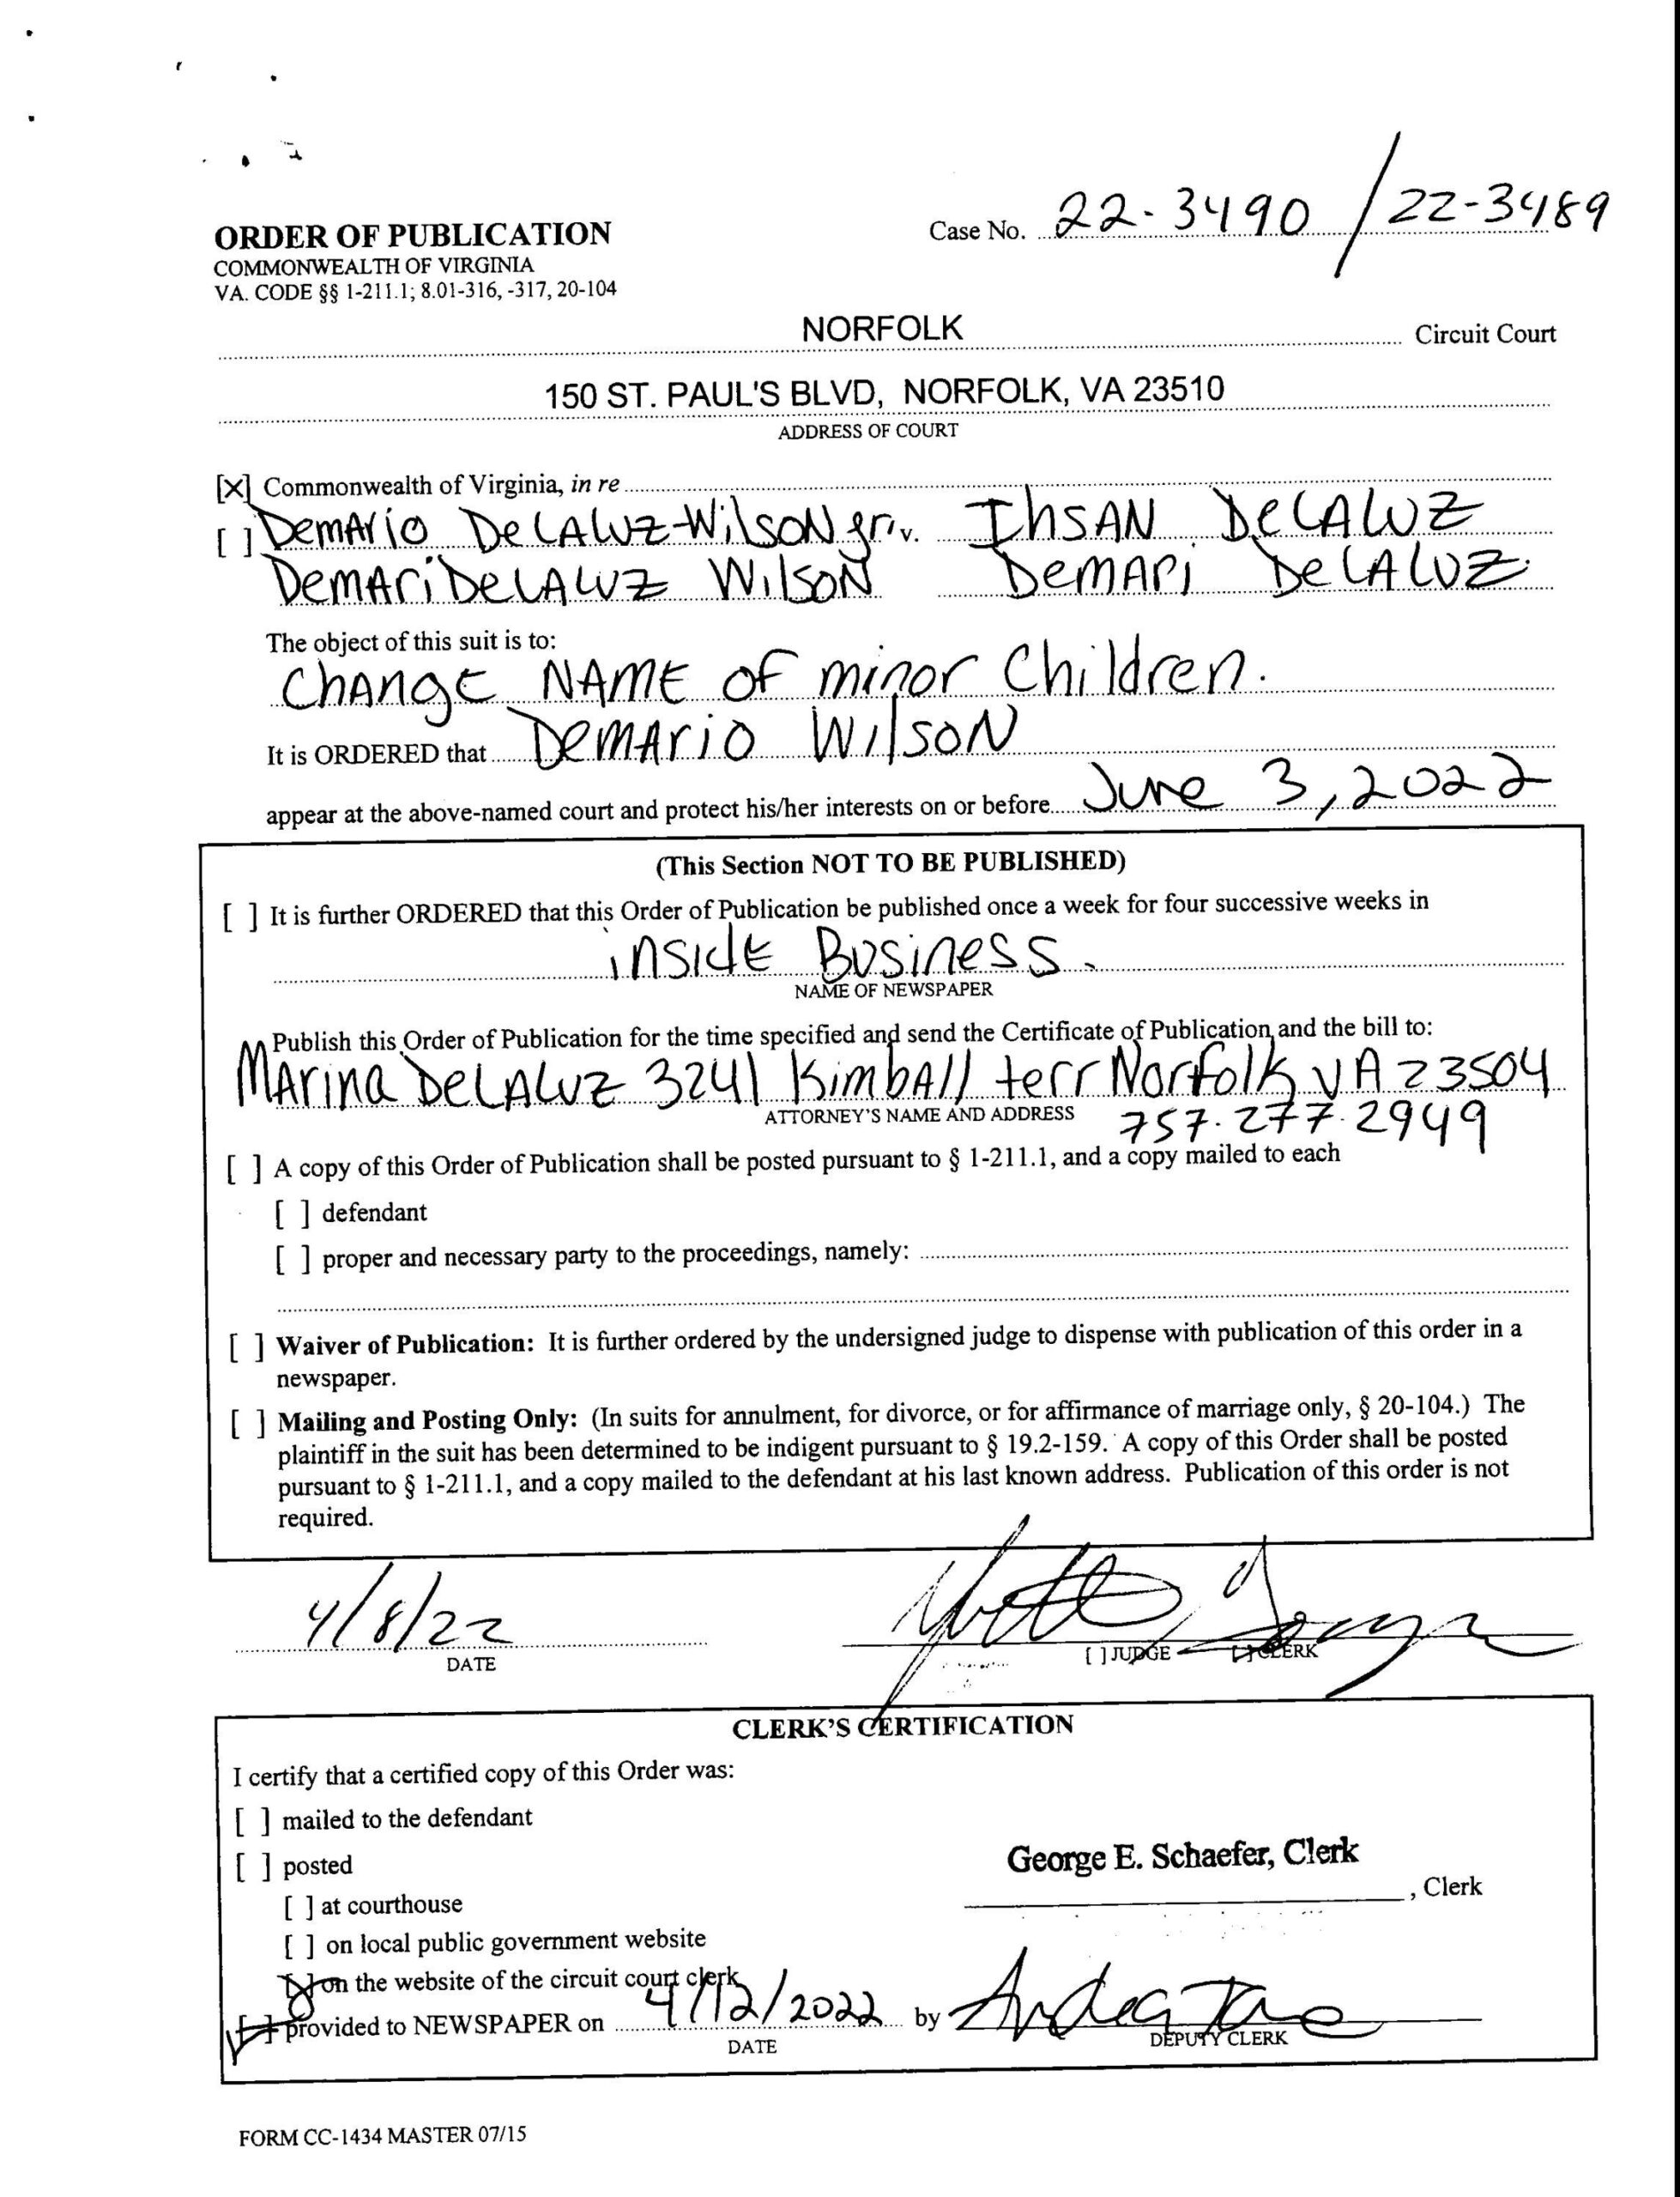 ORDER OF PUBLICATION
COMMONWEALTH OF VIRGINIA
VA. CODE §§ 1-211.1; 8.01-316, -317, 20-104
Case No. 22-3490 / 22-3489
NORFOLK Circuit Court
150 ST. PAUL'S BLVD, NORFOLK, VA 23510
ADDRESS OF COURT
[X] Commonwealth of Virginia, in re
[ ] DemArio DeLALUZ-WilsoN v. IhSAN DeLALUZ
DemAri DeLALUZ WilsoN DemAri DeLALUZ
The object of this suit is to:
ChANge NAME of minor Children.
It is ORDERED that DemArio WilsoN
appear at the above-named court and protect his/her interests on or before June 3, 2022
(This Section NOT TO BE PUBLISHED)
[ ] It is further ORDERED that this Order of Publication be published once a week for four successive weeks in
inside Business.
NAME OF NEWSPAPER
Publish this Order of Publication for the time specified and send the Certificate of Publication and the bill to:
MArina DeLALUZ 3241 KimbAll terr Norfolk VA 23504
ATTORNEY'S NAME AND ADDRESS 757.277.2949
[ ] A copy of this Order of Publication shall be posted pursuant to § 1-211.1, and a copy mailed to each
[ ] defendant
[ ] proper and necessary party to the proceedings, namely:
[ ] Waiver of Publication: It is further ordered by the undersigned judge to dispense with publication of this order in a
newspaper.
[ ] Mailing and Posting Only: (In suits for annulment, for divorce, or for affirmance of marriage only, § 20-104.) The
plaintiff in the suit has been determined to be indigent pursuant to § 19.2-159. A copy of this Order shall be posted
pursuant to § 1-211.1, and a copy mailed to the defendant at his last known address. Publication of this order is not
required.
4/8/22
DATE
[ ] JUDGE [ ] CLERK
CLERK'S CERTIFICATION
I certify that a certified copy of this Order was:
[ ] mailed to the defendant
[ ] posted
[ ] at courthouse
[ ] on local public government website
[X] on the website of the circuit court clerk
[✓] provided to NEWSPAPER on 4/12/2022 by
DATE
George E. Schaefer, Clerk
, Clerk
DEPUTY CLERK
FORM CC-1434 MASTER 07/15